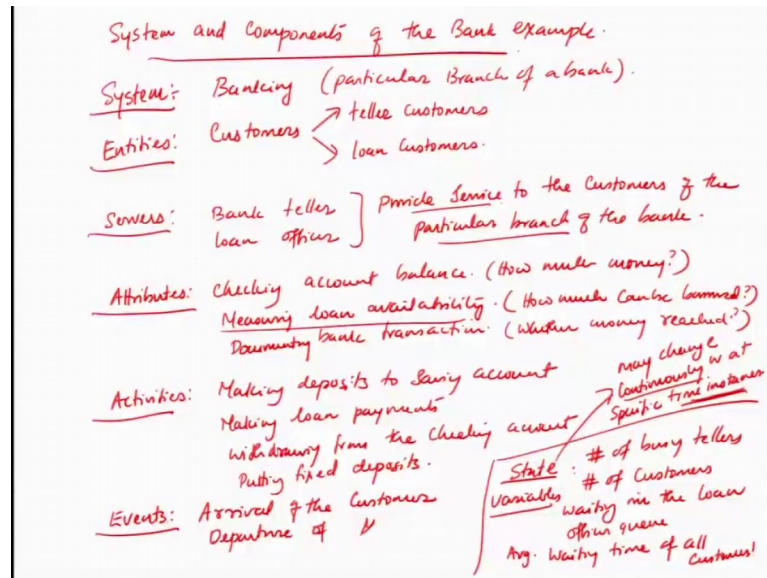 System and Components of the Bank example.
System:- Banking (particular Branch of a bank).
Entities: Customers → teller customers
→ loan customers.
Servers: Bank teller
loan officer
Provide Service to the Customers of the
particular branch of the bank.
Attributes: Checking account balance. (How much money?)
Measuring loan availability. (How much can be borrowed?)
Documenting bank transaction. (Whether money reached?)
Activities: Making deposits to Saving account
Making loan payments
withdrawing from the checking account
Putting fixed deposits.
Events: Arrival of the Customer
Departure of "
may change
Continuously or at
specific time instances
State variables : # of busy tellers
# of Customers
waiting in the loan
officer queue
Avg. waiting time of all
customers!